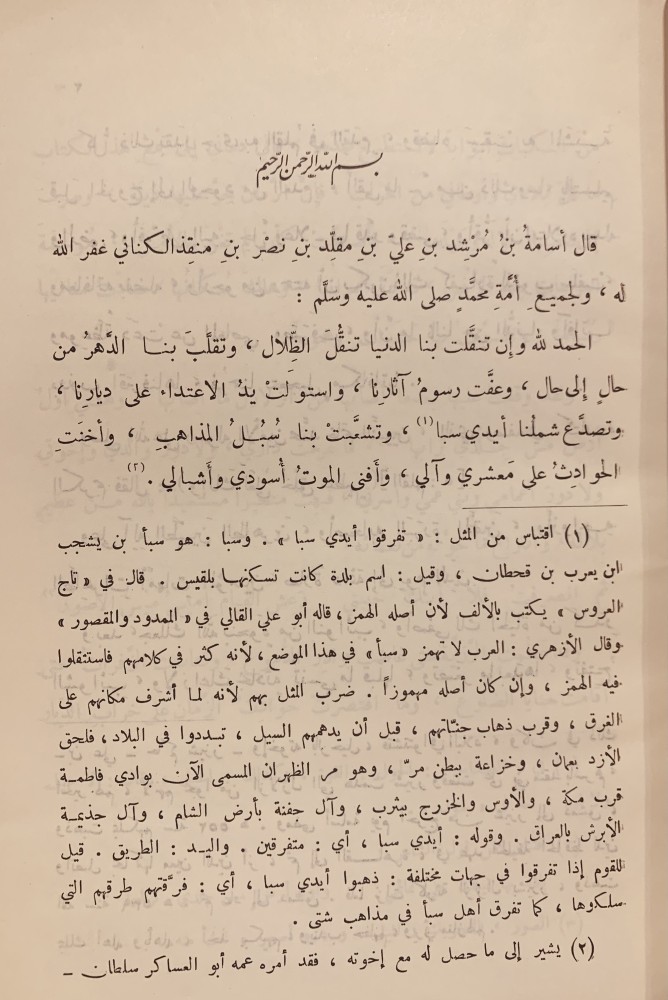 بسم الله الرحمن الرحيم
قال أسامةُ بنُ مُرْشِد بنِ عليّ بنِ مقلِّد بنِ نصْرِ بنِ منقِذ الكناني غفر الله
له ، ولجميعِ أُمَّةِ محمَّدٍ صلى الله عليه وسلَّم :
الحمد لله وإن تنقَّلت بنا الدنيا تنقُّلَ الظِّلال ، وتقلَّبَ بنا الدَّهرُ من
حالٍ إلى حال ، وعفَّت رسومُ آثارِنا ، واستولَتْ يدُ الاعتداء على ديارِنا ،
وتصدَّع شملُنا أيدي سبا (١) ، وتشعَّبتْ بنا سُبُلُ المذاهبِ ، وأخنَتِ
الحوادِثُ على مَعشري وآلي ، وأفنى الموتُ أُسودي وأشبالي . (٢)
(١) اقتباس من المثل : « تفرقوا أيدي سبا » . وسبا : هو سبأ بن يشجب
ابن يعرب بن قحطان ، وقيل : اسم بلدة كانت تسكنها بلقيس . قال في « تاج
العروس » يكتب بالألف لأن أصله الهمز ، قاله أبو علي القالي في « الممدود والمقصور »
وقال الأزهري : العرب لا تهمز « سبأ » في هذا الموضع ، لأنه كثر في كلامهم فاستثقلوا
فيه الهمز ، وإن كان أصله مهموزاً . ضرب المثل بهم لأنه لما أشرف مكانهم على
الغرق ، وقرب ذهاب جنّاتهم ، قبل أن يدهمهم السيل ، تبددوا في البلاد ، فلحق
الأزد بعمان ، وخزاعة ببطن مرّ ، وهو مر الظهران المسمى الآن بوادي فاطمة
قرب مكة ، والأوس والخزرج بيثرب ، وآل جفنة بأرض الشام ، وآل جذيمة
الأبرش بالعراق . وقوله : أيدي سبا ، أي : متفرقين . واليد : الطريق . قيل
للقوم إذا تفرقوا في جهات مختلفة : ذهبوا أيدي سبا ، أي : فرّقتهم طرقهم التي
سلكوها ، كما تفرق أهل سبأ في مذاهب شتى .
(٢) يشير إلى ما حصل له مع إخوته ، فقد أمره عمه أبو العساكر سلطان -